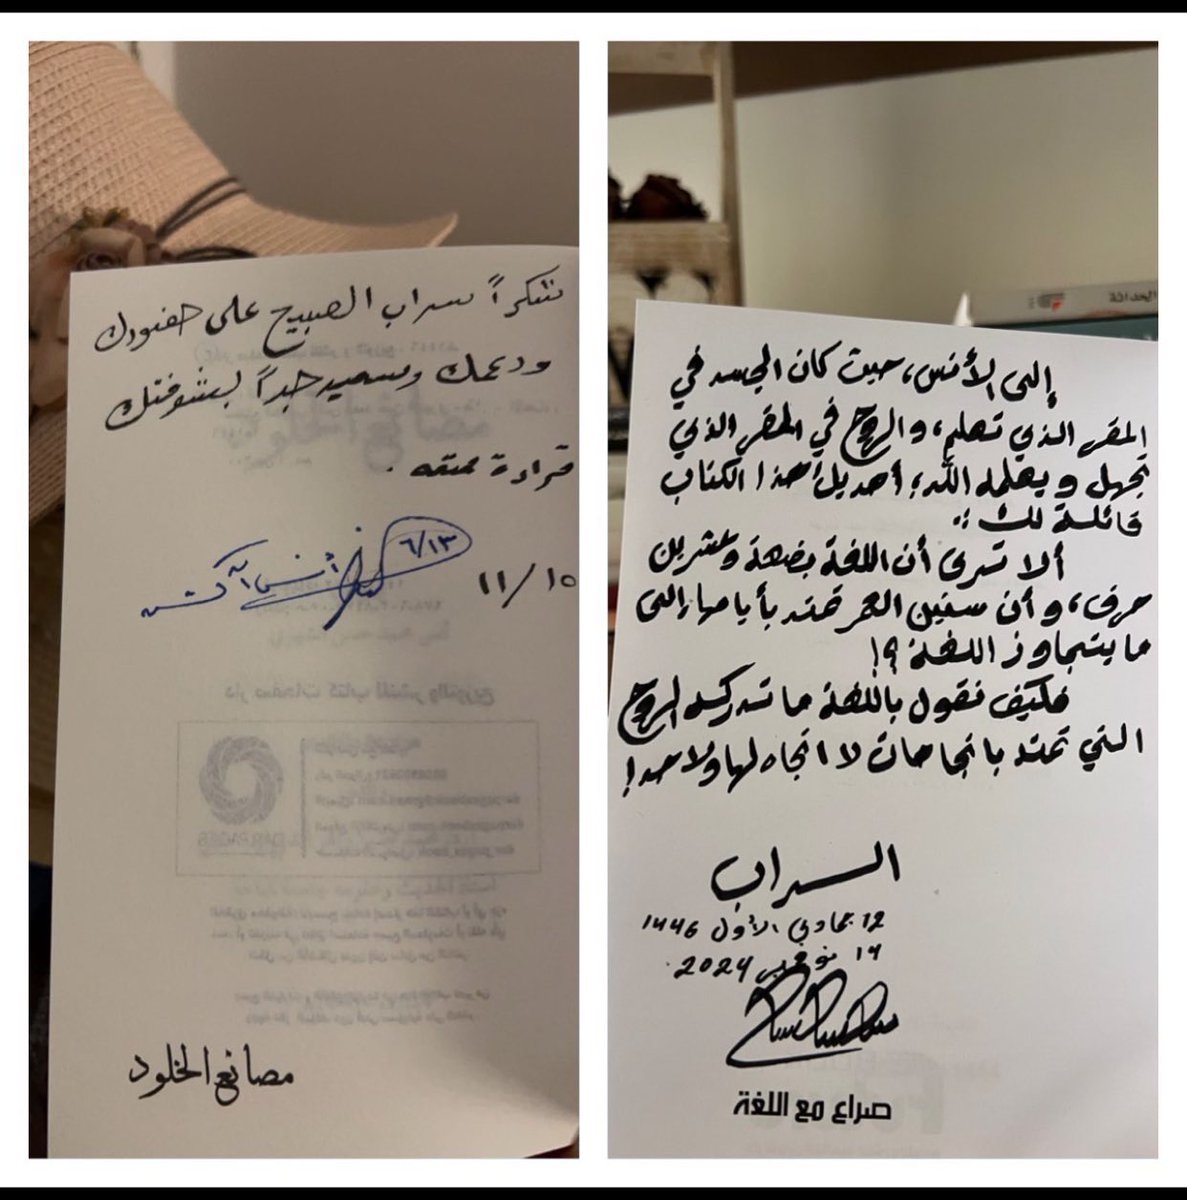 شكراً سراب الصبيح على حضورك
ودعمك وسعيد جداً بشوفتك
قراءة ممتعه .
٦/١٣
١١/١٥
مصانع الخلود
الحداثة
إلى الأنس، حيث كان الجسد في
المقر الذي تعلم، والروح في المقر الذي
تجهل ويعلمه الله؛ أهديك هذا الكتاب
قائلة لك:
ألا ترى أن اللغة بضعة وعشرين
حرف، وأن سنين العمر تمتد بأيامها إلى
ما يتجاوز اللغة؟!
فكيف نقول باللغة ما تدركه الروح
التي تمتد باتجاهات لا اتجاه لها ولا حد!
السراب
12 جمادى الأول 1446
14 نوفمبر 2024
صراع مع اللغة